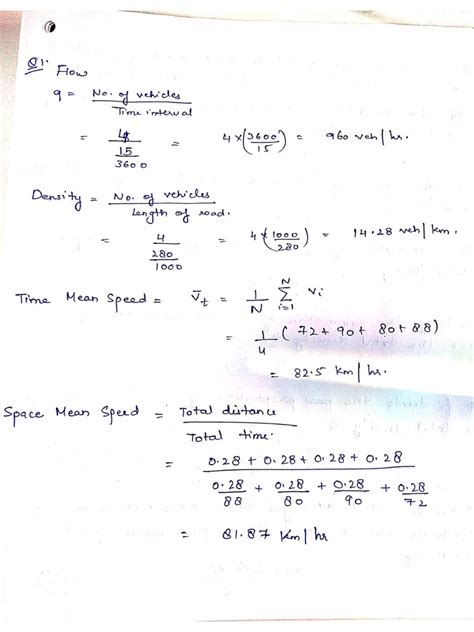 Q1. Flow
q = No. of vehicles / Time interval
= 4 / (15 / 3600) = 4 × (3600 / 15) = 960 veh/hr.
Density = No. of vehicles / Length of road.
= 4 / (280 / 1000) = 4 × (1000 / 280) = 14.28 veh/km.
Time Mean Speed = V̄t = 1/N Σ(i=1 to N) Vi
= 1/4 (72 + 90 + 80 + 88)
= 82.5 km/hr.
Space Mean Speed = Total distance / Total time.
= (0.28 + 0.28 + 0.28 + 0.28) / (0.28/88 + 0.28/80 + 0.28/90 + 0.28/72)
= 81.87 Km/hr